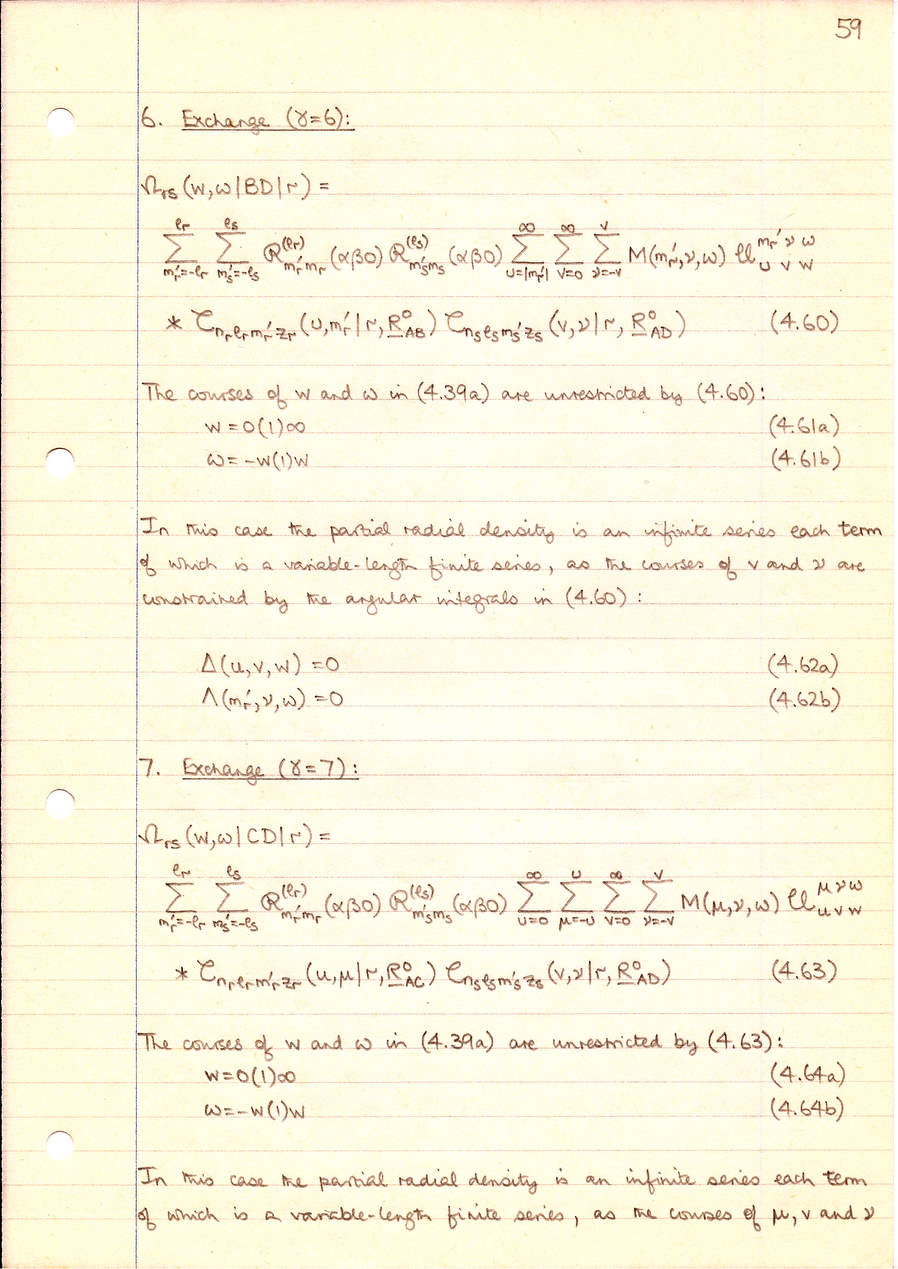 59
6. Exchange (γ=6):
Ω_rs(w,ω|BD|r) =
∑_{m_r'=-ℓ_r}^{ℓ_r} ∑_{m_s'=-ℓ_s}^{ℓ_s} ℛ^{(ℓ_r)}_{m_r'm_r}(αβ0) ℛ^{(ℓ_s)}_{m_s'm_s}(αβ0) ∑_{u=|m_r'|}^{∞} ∑_{v=0}^{∞} ∑_{ν=-v}^{v} M(m_r',ν,ω) 𝒰^{m_r' ν ω}_{u v w}
* 𝒯_{n_rℓ_rm_r'z_r}(u,m_r'|r,R°_AB) 𝒯_{n_sℓ_sm_s'z_s}(v,ν|r,R°_AD) (4.60)
The courses of w and ω in (4.39a) are unrestricted by (4.60):
w = 0(1)∞ (4.61a)
ω = -w(1)w (4.61b)
In this case the partial radial density is an infinite series each term
of which is a variable-length finite series, as the courses of v and ν are
constrained by the angular integrals in (4.60) :
Δ(u,v,w) = 0 (4.62a)
Λ(m_r',ν,ω) = 0 (4.62b)
7. Exchange (γ=7):
Ω_rs(w,ω|CD|r) =
∑_{m_r'=-ℓ_r}^{ℓ_r} ∑_{m_s'=-ℓ_s}^{ℓ_s} ℛ^{(ℓ_r)}_{m_r'm_r}(αβ0) ℛ^{(ℓ_s)}_{m_s'm_s}(αβ0) ∑_{u=0}^{∞} ∑_{μ=-u}^{u} ∑_{v=0}^{∞} ∑_{ν=-v}^{v} M(μ,ν,ω) 𝒰^{μ ν ω}_{u v w}
* 𝒯_{n_rℓ_rm_r'z_r}(u,μ|r,R°_AC) 𝒯_{n_sℓ_sm_s'z_s}(v,ν|r,R°_AD) (4.63)
The courses of w and ω in (4.39a) are unrestricted by (4.63):
w = 0(1)∞ (4.64a)
ω = -w(1)w (4.64b)
In this case the partial radial density is an infinite series each term
of which is a variable-length finite series, as the courses of μ, v and ν